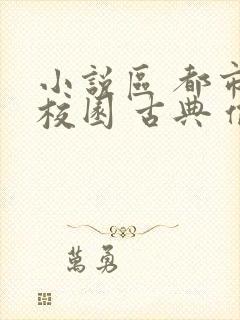 小說區 都市
校園 古典
萬勇